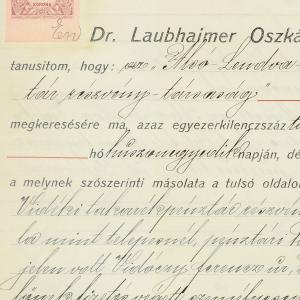 KORONA
Én
Dr. Laubhajmer Oszká
tanusitom, hogy: az "Alsó-Lendva-
tár részvény-társaság"
megkeresésére ma, azaz egyezerkilenczszáz
hó huszonegyedik napján, dé
a melynek szószerinti másolata a tulsó oldalo
Vidéki takarékpénztár részvén
la mint telepesnél, pénztári
jelen volt Vidóczy Ferencz ur,